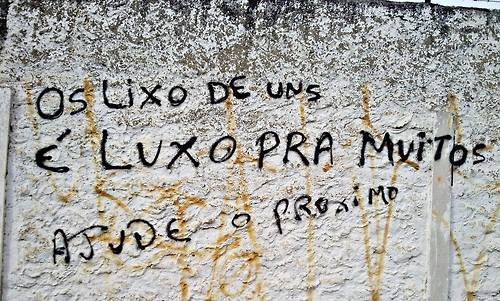 OS LiXO DE UNS
É LUXO PRA MUiTOS
AJUDE O PROXiMO